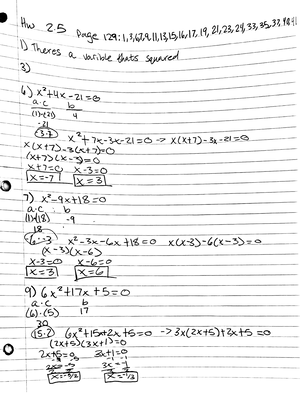 Hw 2.5 Page 129: 1,3,6,7,9,11,13,15,16,17,19,21,23,24,33,35,37,40,41
1) Theres a varible thats squared
3)
6) x²+4x-21=0
a·c b
(1)(-21) 4
-21
(-3·7) x²+7x-3x-21=0 -> x(x+7)-3x-21=0
x(x+7)-3(x+7)=0
(x+7)(x-3)=0
x+7=0 x-3=0
x=-7 x=3
7) x²-9x+18=0
a·c b
(1)(18) -9
18
-6·-3 x²-3x-6x+18=0 x(x-3)-6(x-3)=0
(x-3)(x-6)
x-3=0 x-6=0
x=3 x=6
9) 6x²+17x+5=0
a·c b
(6)·(5) 17
30
(15·2) 6x²+15x+2x+5=0 -> 3x(2x+5)+2x+5=0
(2x+5)(3x+1)=0
2x+5=0 3x+1=0
x=-5/2 x=-1/3